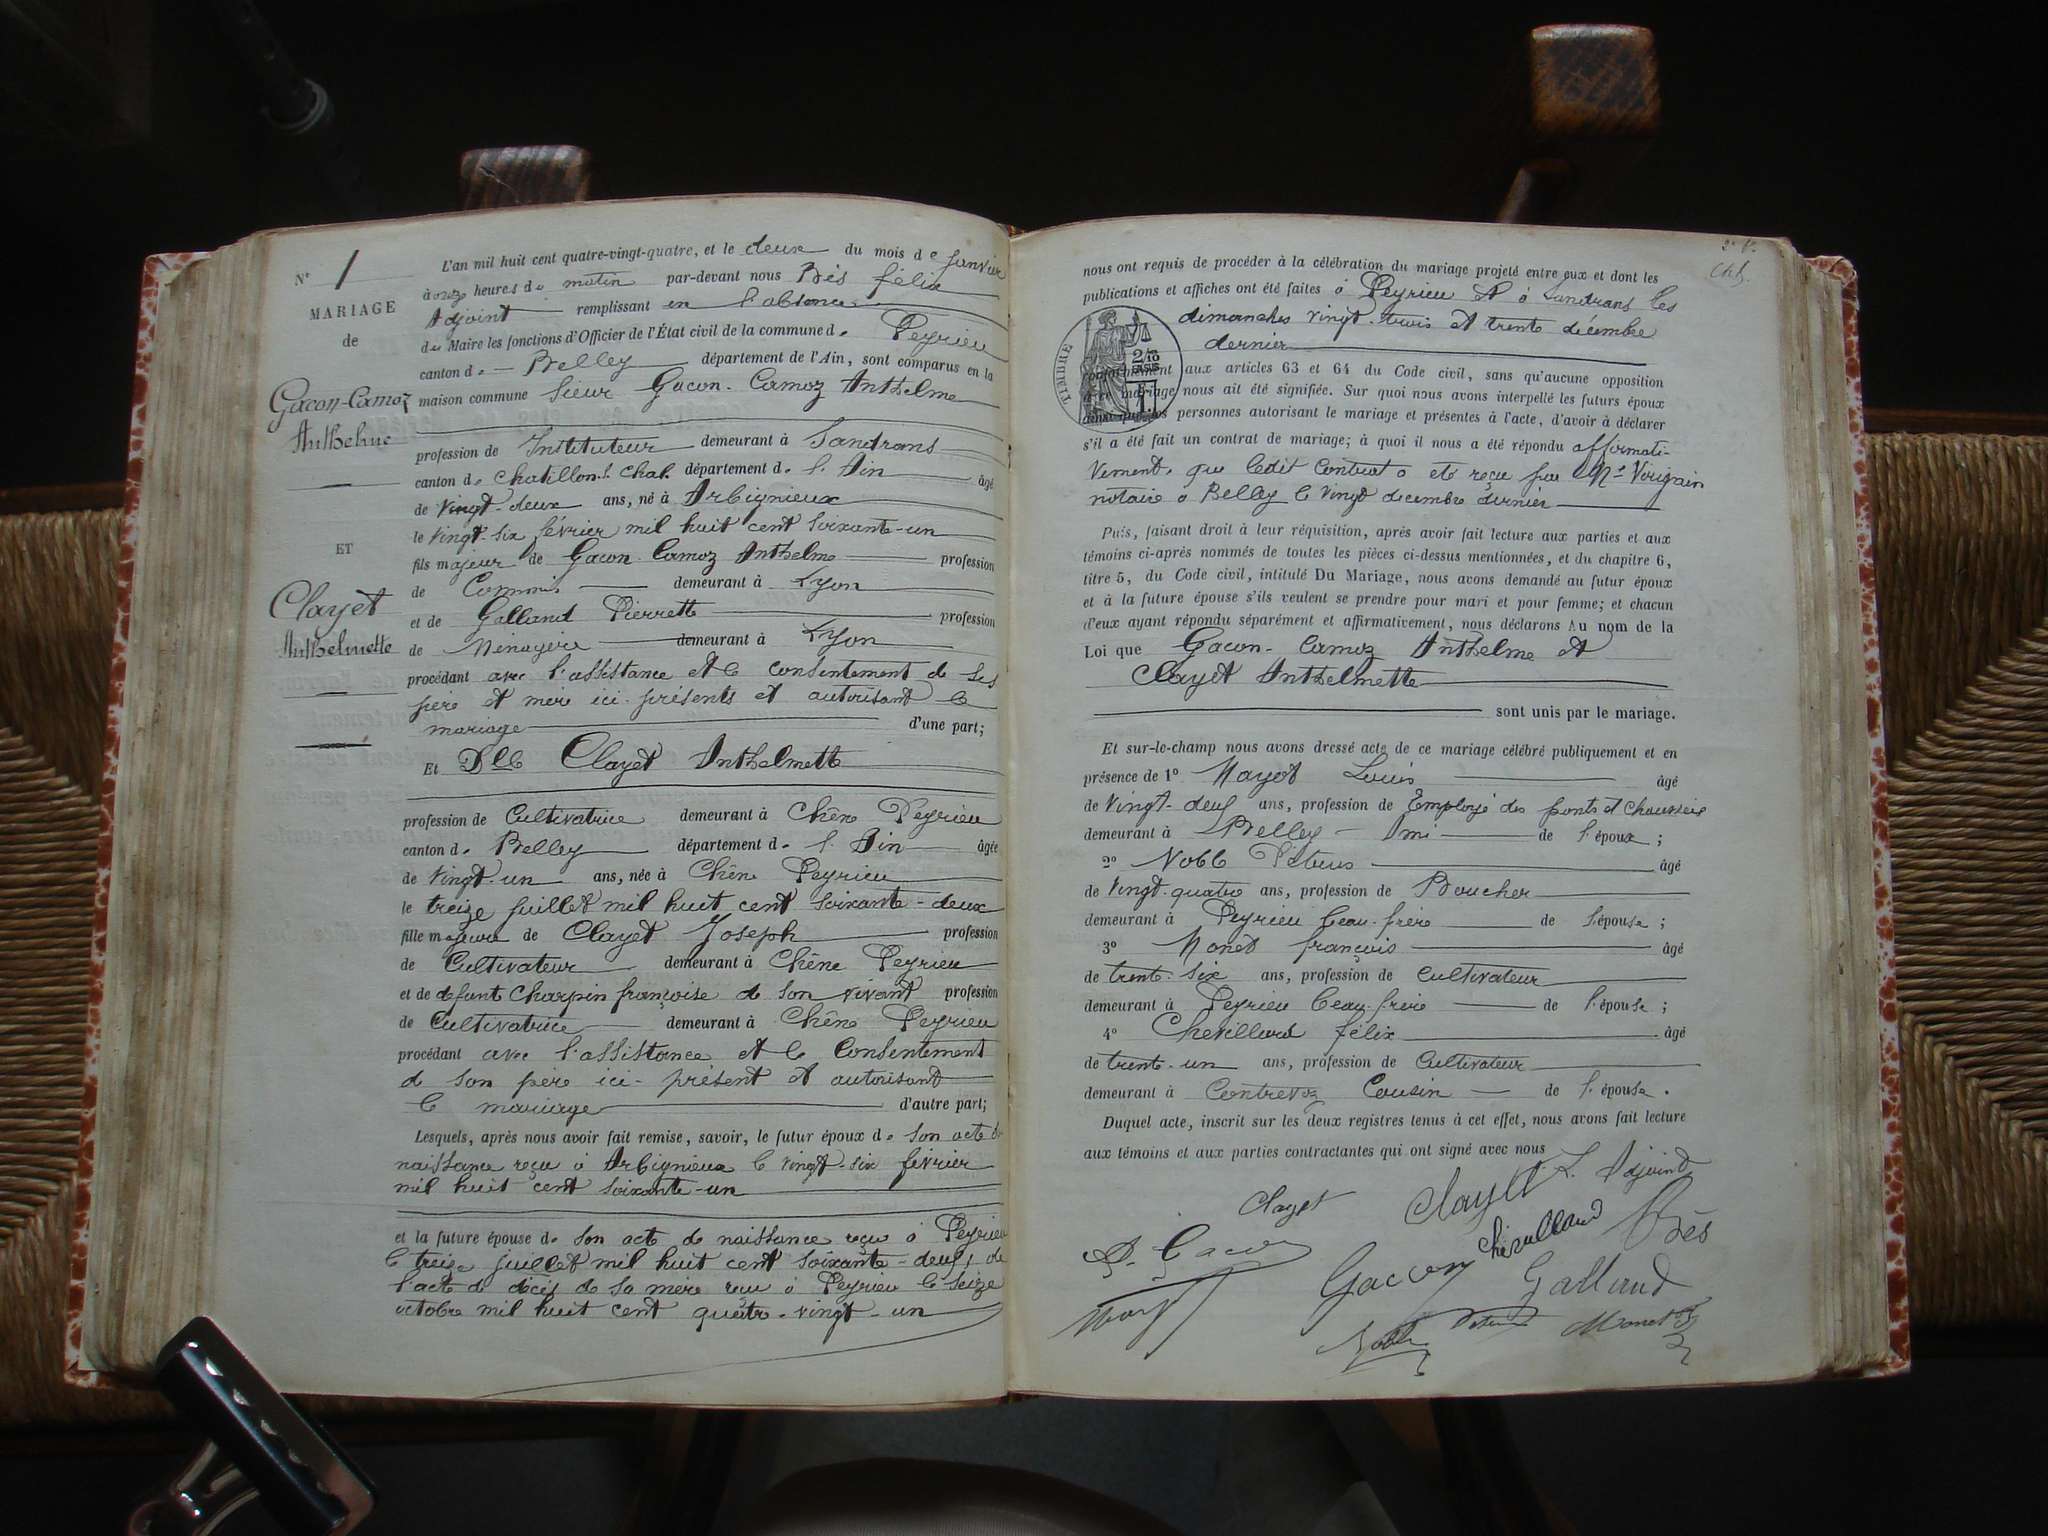 N° 1
MARIAGE
de
Gacon-Camoz
Anthelme
ET
Clayet
Anthelmette
L'an mil huit cent quatre-vingt-quatre, et le deux du mois de Janvier
à onze heures du matin par-devant nous Bés félix
Adjoint remplissant en l'absence
du Maire les fonctions d'Officier de l'État civil de la commune de Peyrieu
canton de Belley département de l'Ain, sont comparus en la
maison commune Sieur Gacon-Camoz Anthelme
profession de Instituteur demeurant à Sandrans
canton de Chatillon s. Chal. département de l'Ain âgé
de Vingt-deux ans, né à Arbignieux
le vingt-six février mil huit cent soixante-un
fils majeur de Gacon-Camoz Anthelme profession
de Commis demeurant à Lyon
et de Galland Pierrette profession
de Ménagère demeurant à Lyon
procédant avec l'assistance et le consentement de ses
père et mère ici-présents et autorisant le
mariage d'une part;
Et Dlle Clayet Anthelmette
profession de Cultivatrice demeurant à Chêne Peyrieu
canton de Belley département de l'Ain âgée
de Vingt-un ans, née à Chêne Peyrieu
le treize juillet mil huit cent soixante-deux
fille majeure de Clayet Joseph profession
de Cultivateur demeurant à Chêne Peyrieu
et de defunte Charpin françoise de son vivant profession
de Cultivatrice demeurant à Chêne Peyrieu
procédant avec l'assistance et le Consentement
de son père ici-présent et autorisant
le mariage d'autre part;
Lesquels, après nous avoir fait remise, savoir, le futur époux de son acte de
naissance reçu à Arbignieux le vingt-six février
mil huit cent soixante-un
et la future épouse de son acte de naissance reçu à Peyrieu
le treize juillet mil huit cent soixante-deux, de
l'acte de décès de sa mère reçu à Peyrieu le seize
octobre mil huit cent quatre-vingt-un
nous ont requis de procéder à la célébration du mariage projeté entre eux et dont les
publications et affiches ont été faites à Peyrieu et à Sandrans les
dimanches vingt-trois et trente décembre
dernier
TIMBRE
conformément aux articles 63 et 64 du Code civil, sans qu'aucune opposition
à ce mariage nous ait été signifiée. Sur quoi nous avons interpellé les futurs époux
ainsi que les personnes autorisant le mariage et présentes à l'acte, d'avoir à déclarer
s'il a été fait un contrat de mariage; à quoi il nous a été répondu affirmati-
vement, que ledit Contrat a été reçu par Me Vorignin
notaire à Belley le vingt decembre dernier
Puis, faisant droit à leur réquisition, après avoir fait lecture aux parties et aux
témoins ci-après nommés de toutes les pièces ci-dessus mentionnées, et du chapitre 6,
titre 5, du Code civil, intitulé Du Mariage, nous avons demandé au futur époux
et à la future épouse s'ils veulent se prendre pour mari et pour femme; et chacun
d'eux ayant répondu séparément et affirmativement, nous déclarons Au nom de la
Loi que Gacon-Camoz Anthelme et
Clayet Anthelmette
sont unis par le mariage.
Et sur-le-champ nous avons dressé acte de ce mariage célébré publiquement et en
présence de 1° Mayot Louis âgé
de Vingt-deux ans, profession de Employé des ponts et chaussées
demeurant à Belley Ami de l'époux;
2° Noble Piteus âgé
de Vingt-quatre ans, profession de Boucher
demeurant à Peyrieu beau-frère de l'épouse;
3° Monet françois âgé
de trente-six ans, profession de Cultivateur
demeurant à Peyrieu beau-frère de l'épouse;
4° Chevillard félix âgé
de trente-un ans, profession de Cultivateur
demeurant à Contrevoz Cousin de l'épouse.
Duquel acte, inscrit sur les deux registres tenus à cet effet, nous avons fait lecture
aux témoins et aux parties contractantes qui ont signé avec nous
L. Adjoint
Clayet
Clayet
Chevillard
Bès
Gacon
Galland
Monet